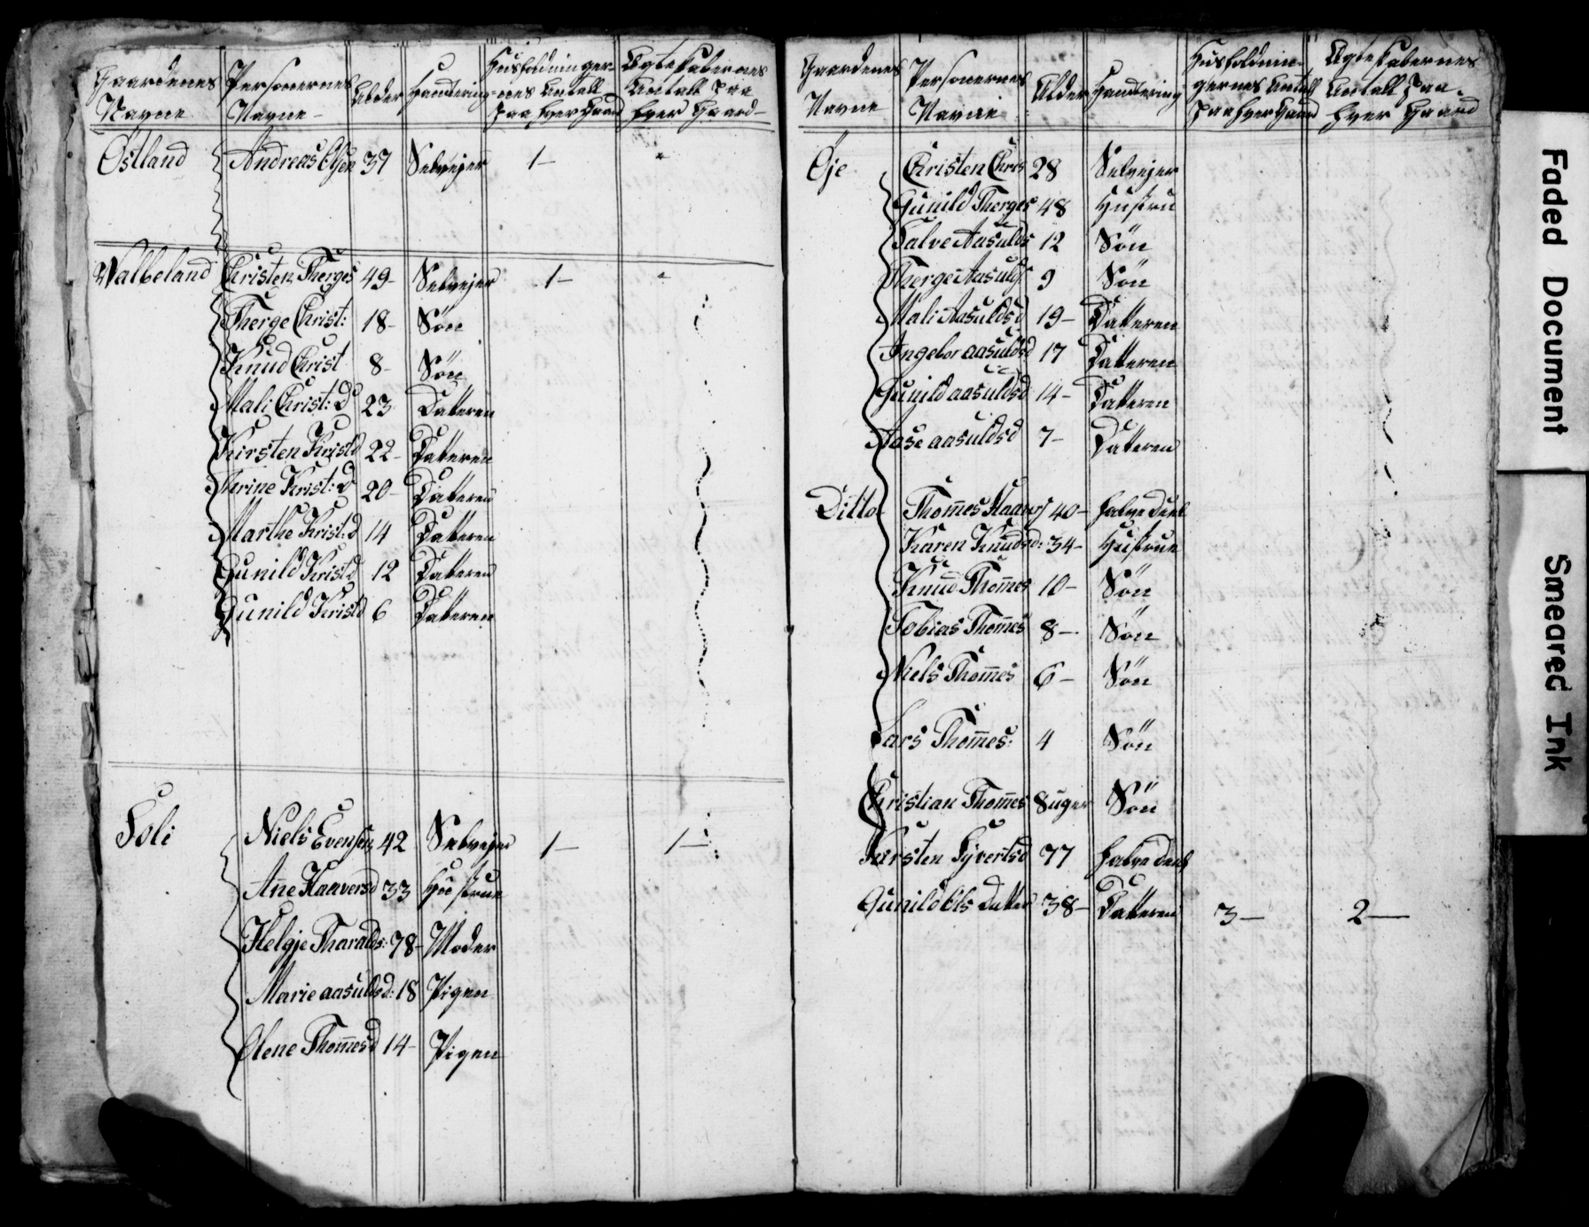 Gaardenes Navne | Personernes Navne | Alder | Handtering | Huusholdningernes Antall paa hver Gaard | Ægteskabernes Antall paa hver Gaard
Østland | Andreas | 37 | Selvejer | 1
Walbeland | Christen Therges | 49 | Selvejer | 1
Therge Christ: | 18 | Søn
Knud Christ | 8 | Søn
Mali Christ: D | 23 | Datteren
Kirsten Kristd | 22 | Datteren
Trine Krist: d | 20 | Datteren
Marthe Krist: d | 14 | Datteren
Gunild Kristd | 12 | Datteren
Gunild Kristd | 6 | Datteren
Foli | Niels Evensen | 42 | Selvejer | 1 | 1
Añe Haaversd | 33 | Hustrue
Helgje Tharalds: | 78 | Moder
Marie aasuldsd: | 18 | Pigen
Olene Thom̄esd | 14 | Pigen
Gaardenes Navne | Personernes Navne | Alder | Handtering | Huusholdningernes Antall paa hver Gaard | Ægteskabernes Antall paa hver Gaard
Øje | Christen Chris | 28 | Selvejer
Gunild Therges | 48 | Hustru
Salve Aasulds | 12 | Søn
Therge Aasulds | 9 | Søn
Mali Aasuldsd | 19 | Datteren
Ingebor aasuldsd | 17 | Datteren
Gunild aasuldsd | 14 | Datteren
Aase aasuldsd | 7 | Datteren
Ditto | Thom̄es Haavor | 40
Karen Knudsd: | 34 | Hustrue
Knud Thom̄es | 10 | Søn
Tobias Thom̄es | 8 | Søn
Niels Thom̄es | 6 | Søn
Lars Thom̄es: | 4 | Søn
Christian Thom̄es | 8 uger | Søn
Kirsten Syvertsd | 77
Gunild Els Datter | 38 | Datteren | 3 | 2
Faded Document
Smeared Ink